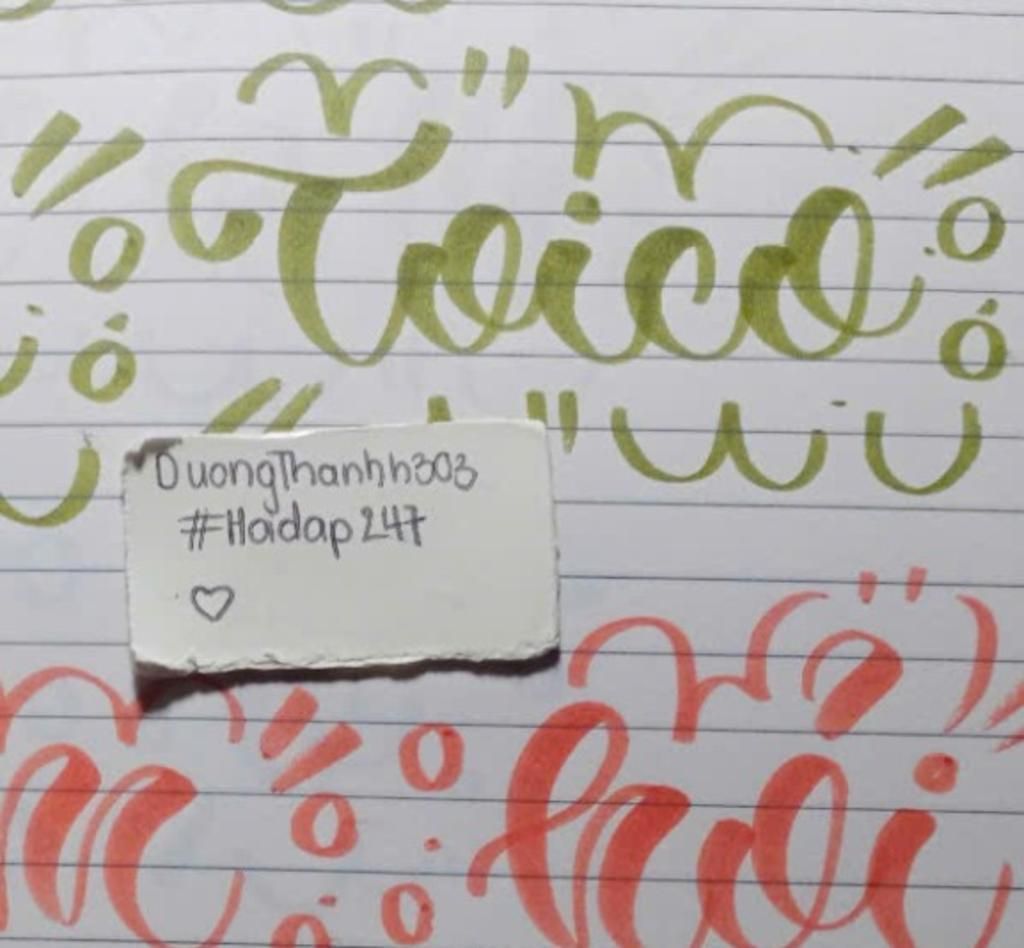 Toico
DuongThanhh303
#Hoidap247
hoi